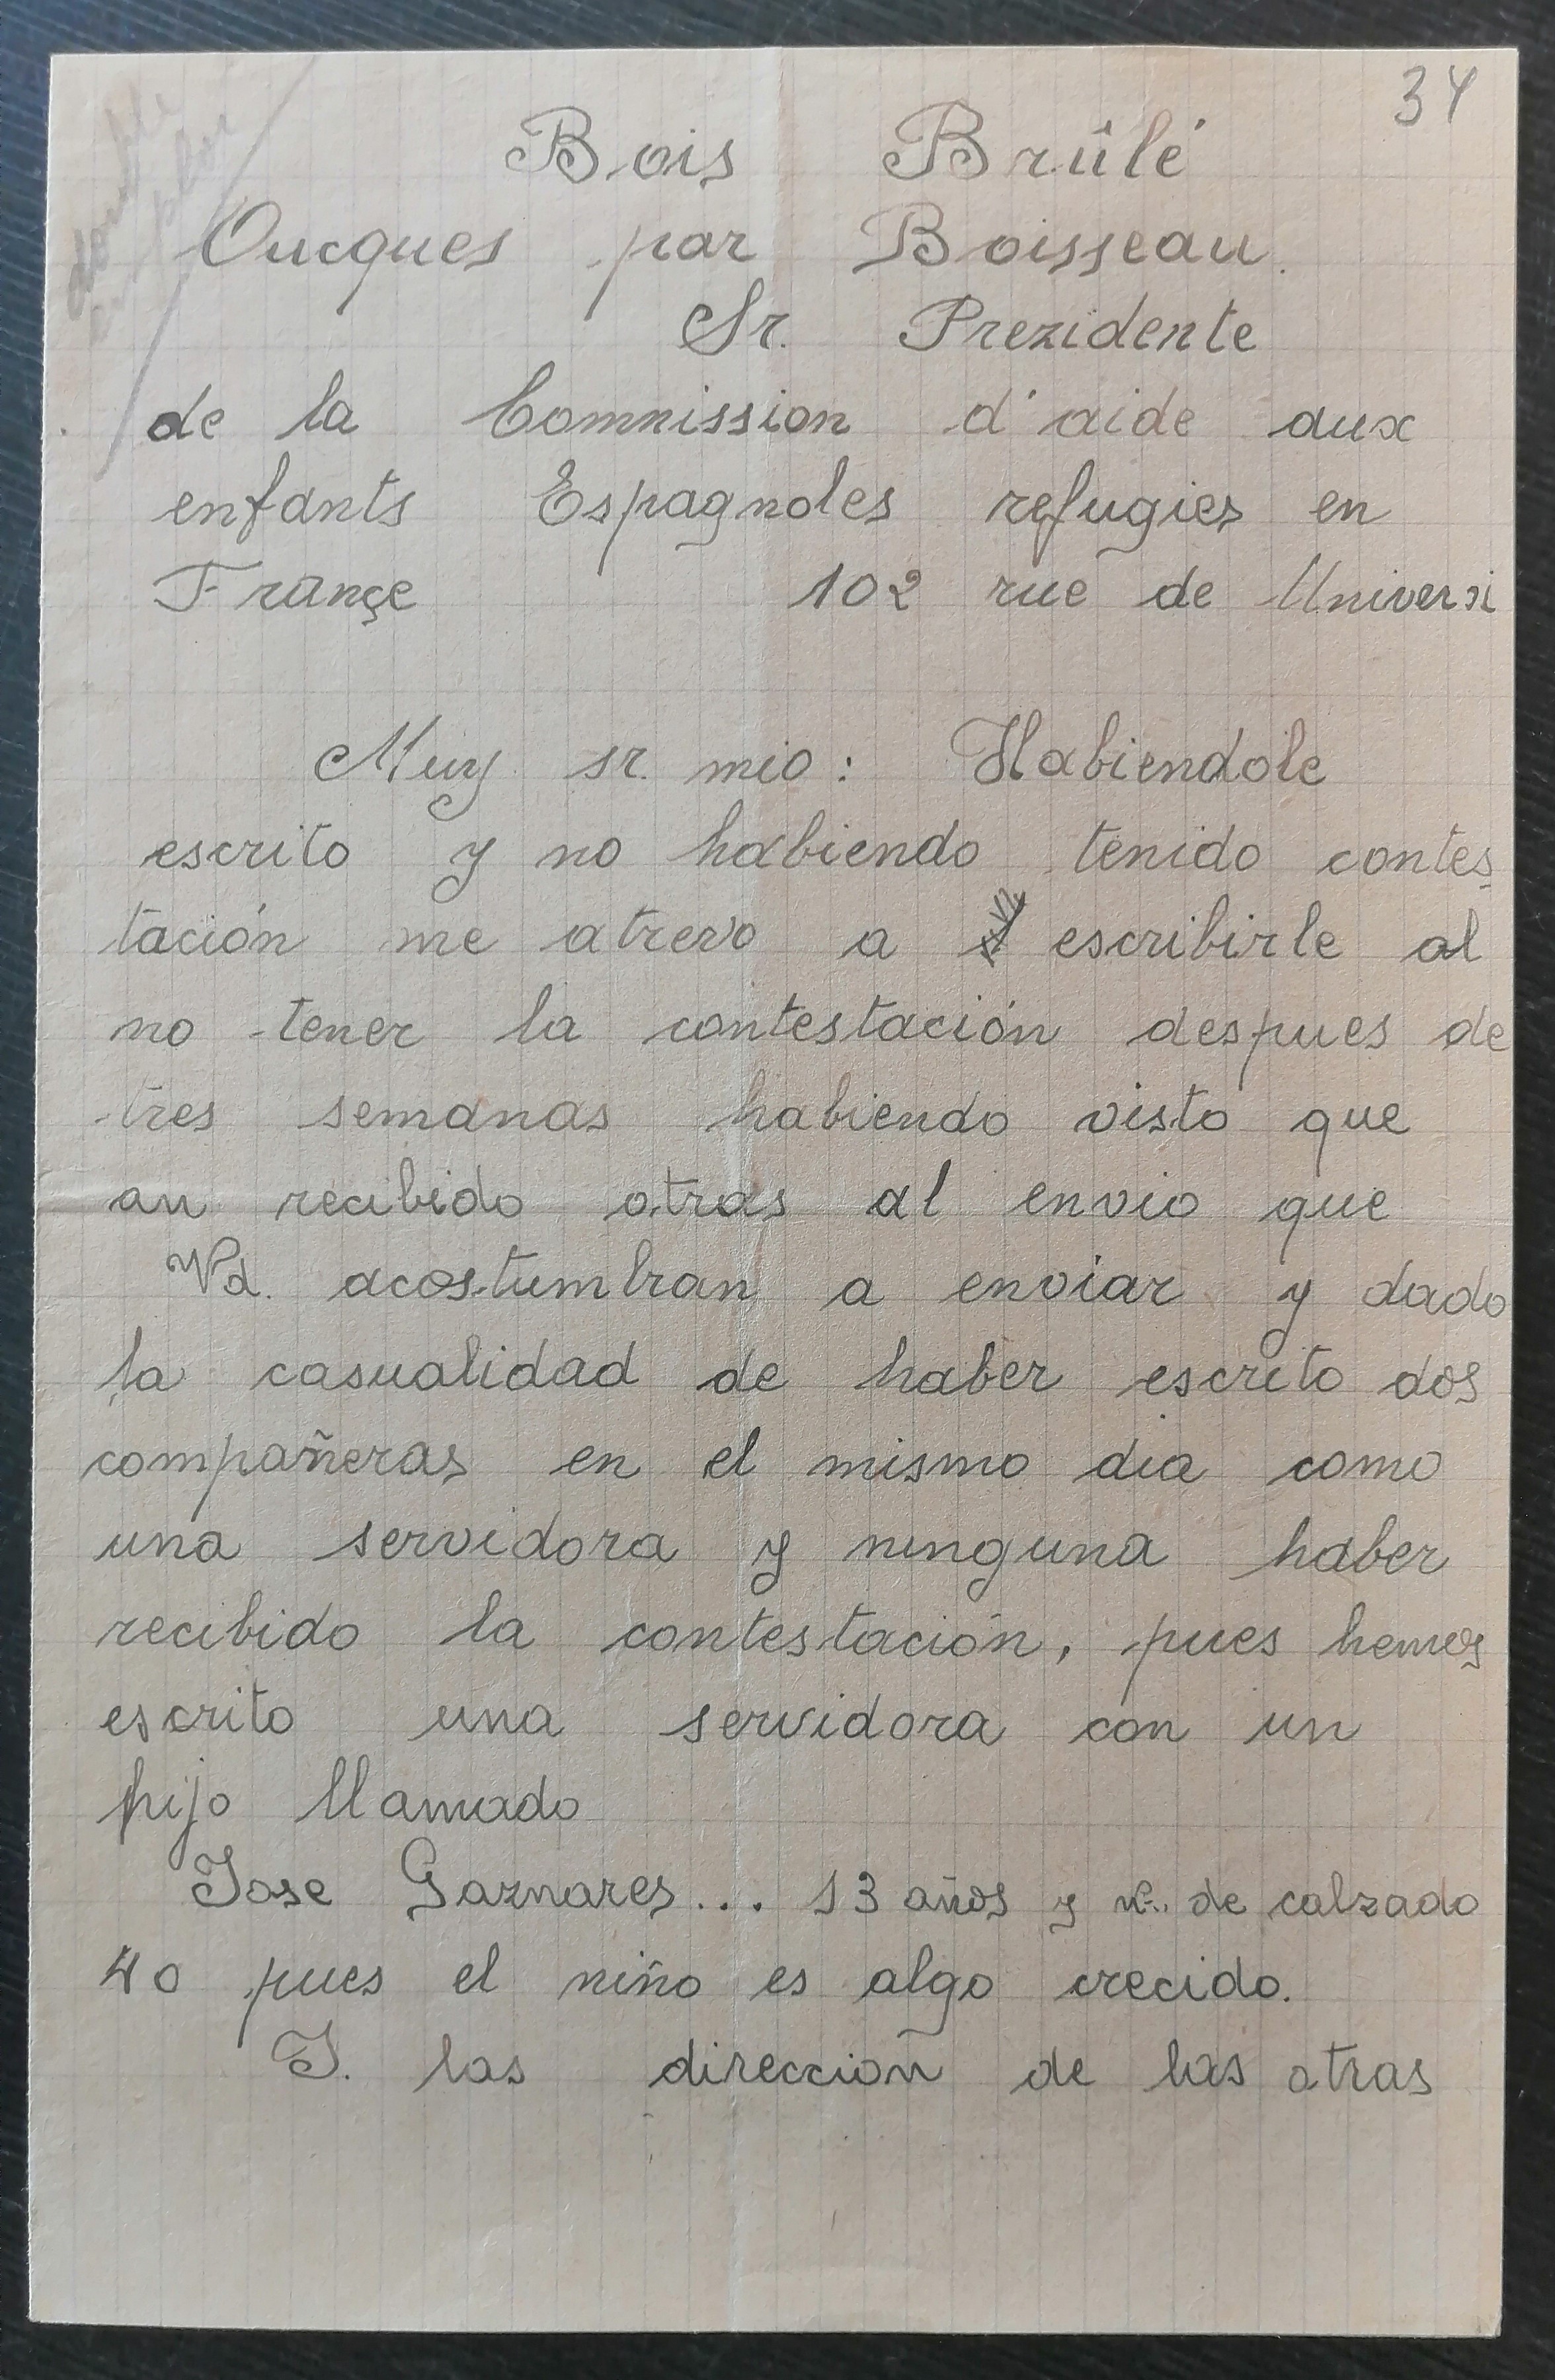 34
Bois Brûlé
Oucques par Boisseau.
Sr. Prezidente
de la Commission d'aide aux
enfants Espagnoles refugies en
Françe 102 rue de Universi
Muy sr. mio: Habiendole
escrito y no habiendo tenido contes
tación me atrevo a escribirle al
no tener la contestación despues de
tres semanas habiendo visto que
an recibido otras al envio que
Vd. acostumbran a enviar y dado
la casualidad de haber escrito dos
compañeras en el mismo dia como
una servidora y ninguna haber
recibido la contestación, pues hemos
escrito una servidora con un
hijo llamado
Jose Gaznares... 13 años y nº. de calzado
40 pues el niño es algo crecido.
I. las direccion de las otras